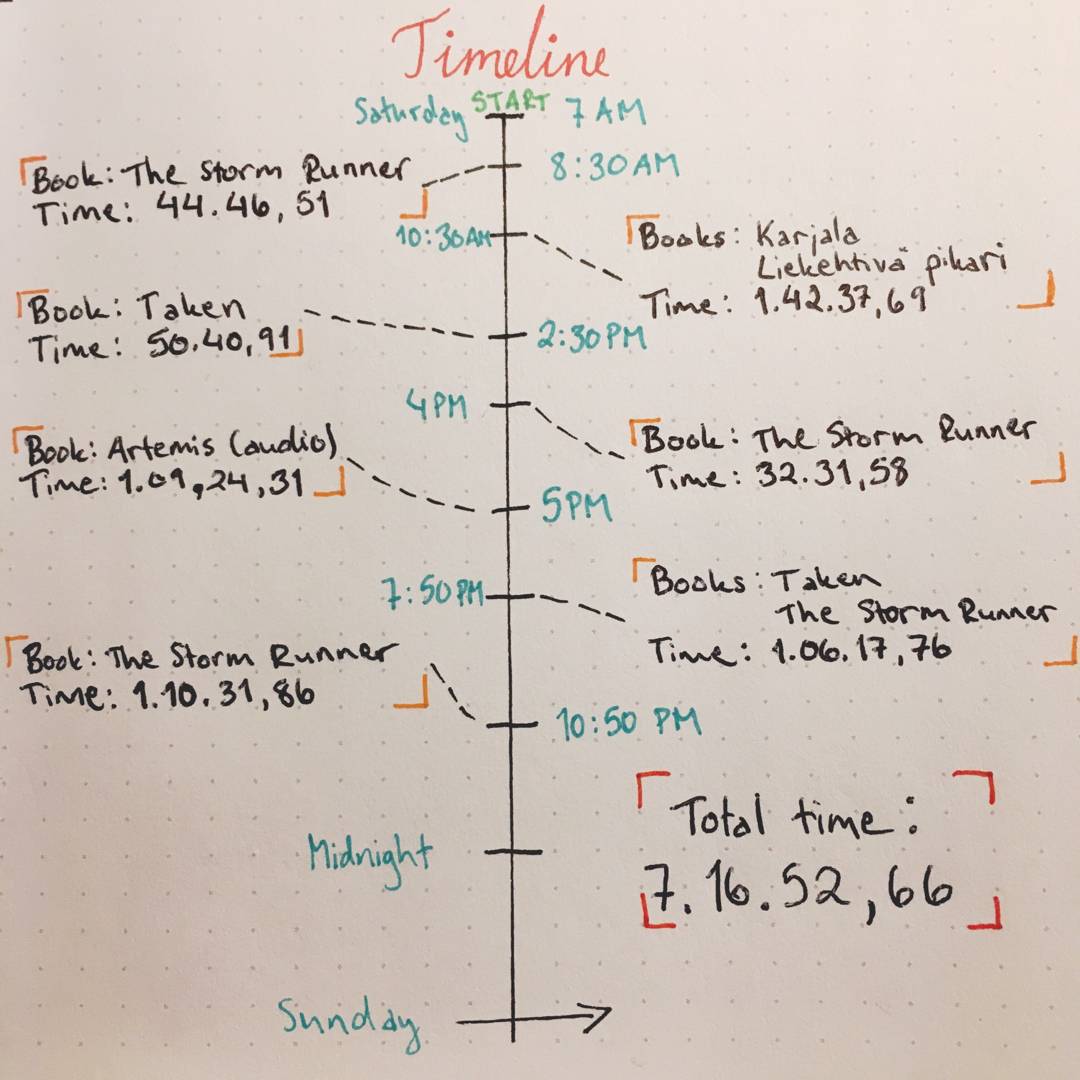 Timeline
Saturday START 7 AM
8:30AM
Book: The Storm Runner
Time: 44.46, 51
10:30AM
Books: Karjala
Liekehtivä pikari
Time: 1.42.37,69
Book: Taken
Time: 50.40,91
2:30PM
4PM
Book: The Storm Runner
Time: 32.31,58
Book: Artemis (audio)
Time: 1.09,24,31
5PM
7:50PM
Books: Taken
The Storm Runner
Time: 1.06.17,76
Book: The Storm Runner
Time: 1.10.31,86
10:50 PM
Total time:
7.16.52,66
Midnight
Sunday